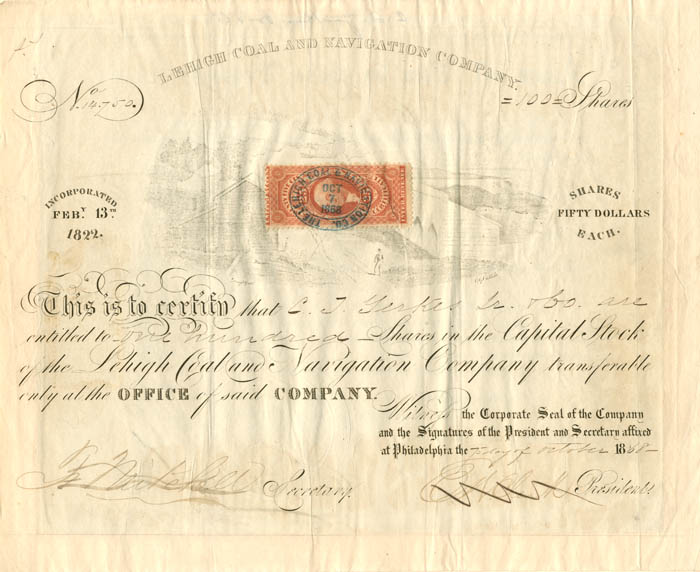 LEHIGH COAL AND NAVIGATION COMPANY.
No. 14,750.
=100= Shares
INCORPORATED
FEBY. 13TH
1822.
THE LEHIGH COAL & NAVIGATION CO.
OCT
7
1868
SHARES
FIFTY DOLLARS
EACH.
This is to certify that C. T. Yerkes Jr. & Co. are
entitled to One hundred Shares in the Capital Stock
of the Lehigh Coal and Navigation Company transferable
only at the OFFICE of said COMPANY.
Witness the Corporate Seal of the Company
and the Signatures of the President and Secretary affixed
at Philadelphia the day of October 1868
Secretary.
President.